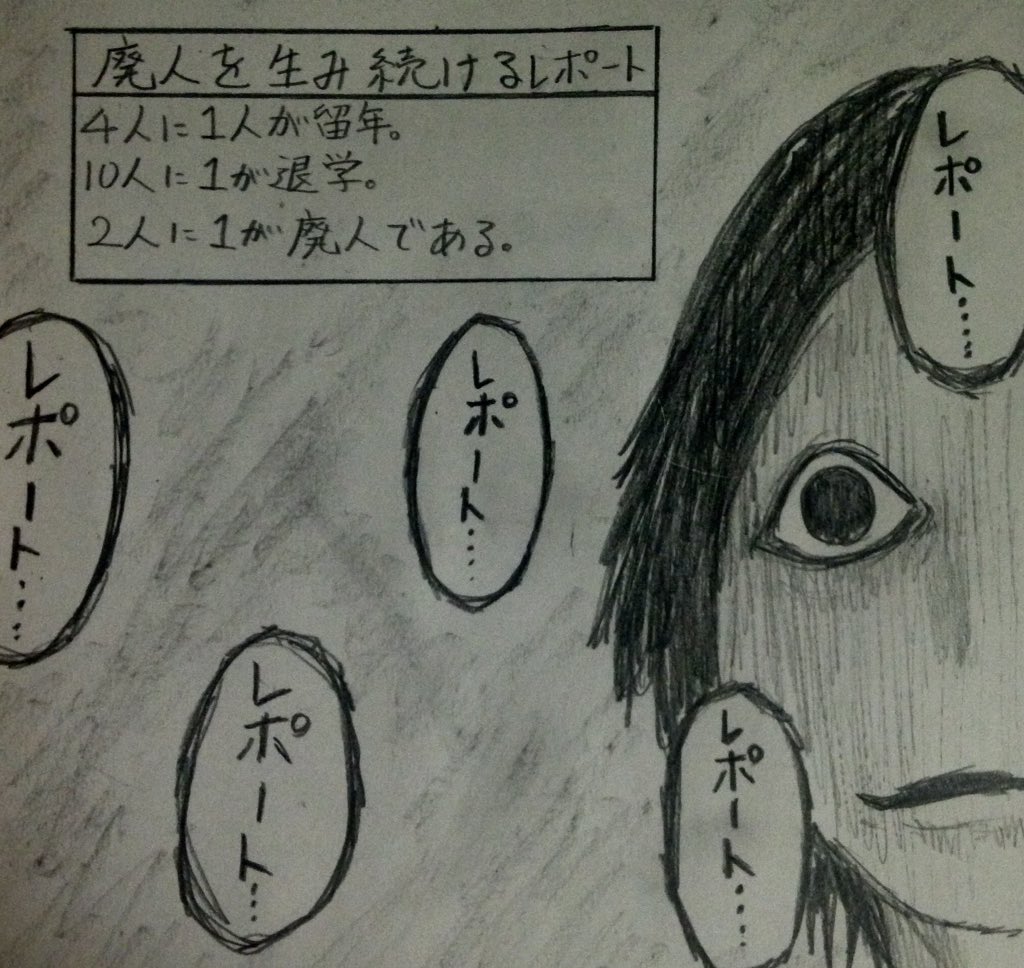 廃人を生み続けるレポート
4人に1人が留年。
10人に1が退学。
2人に1が廃人である。
レポート……
レポート……
レポート……
レポート……
レポート……